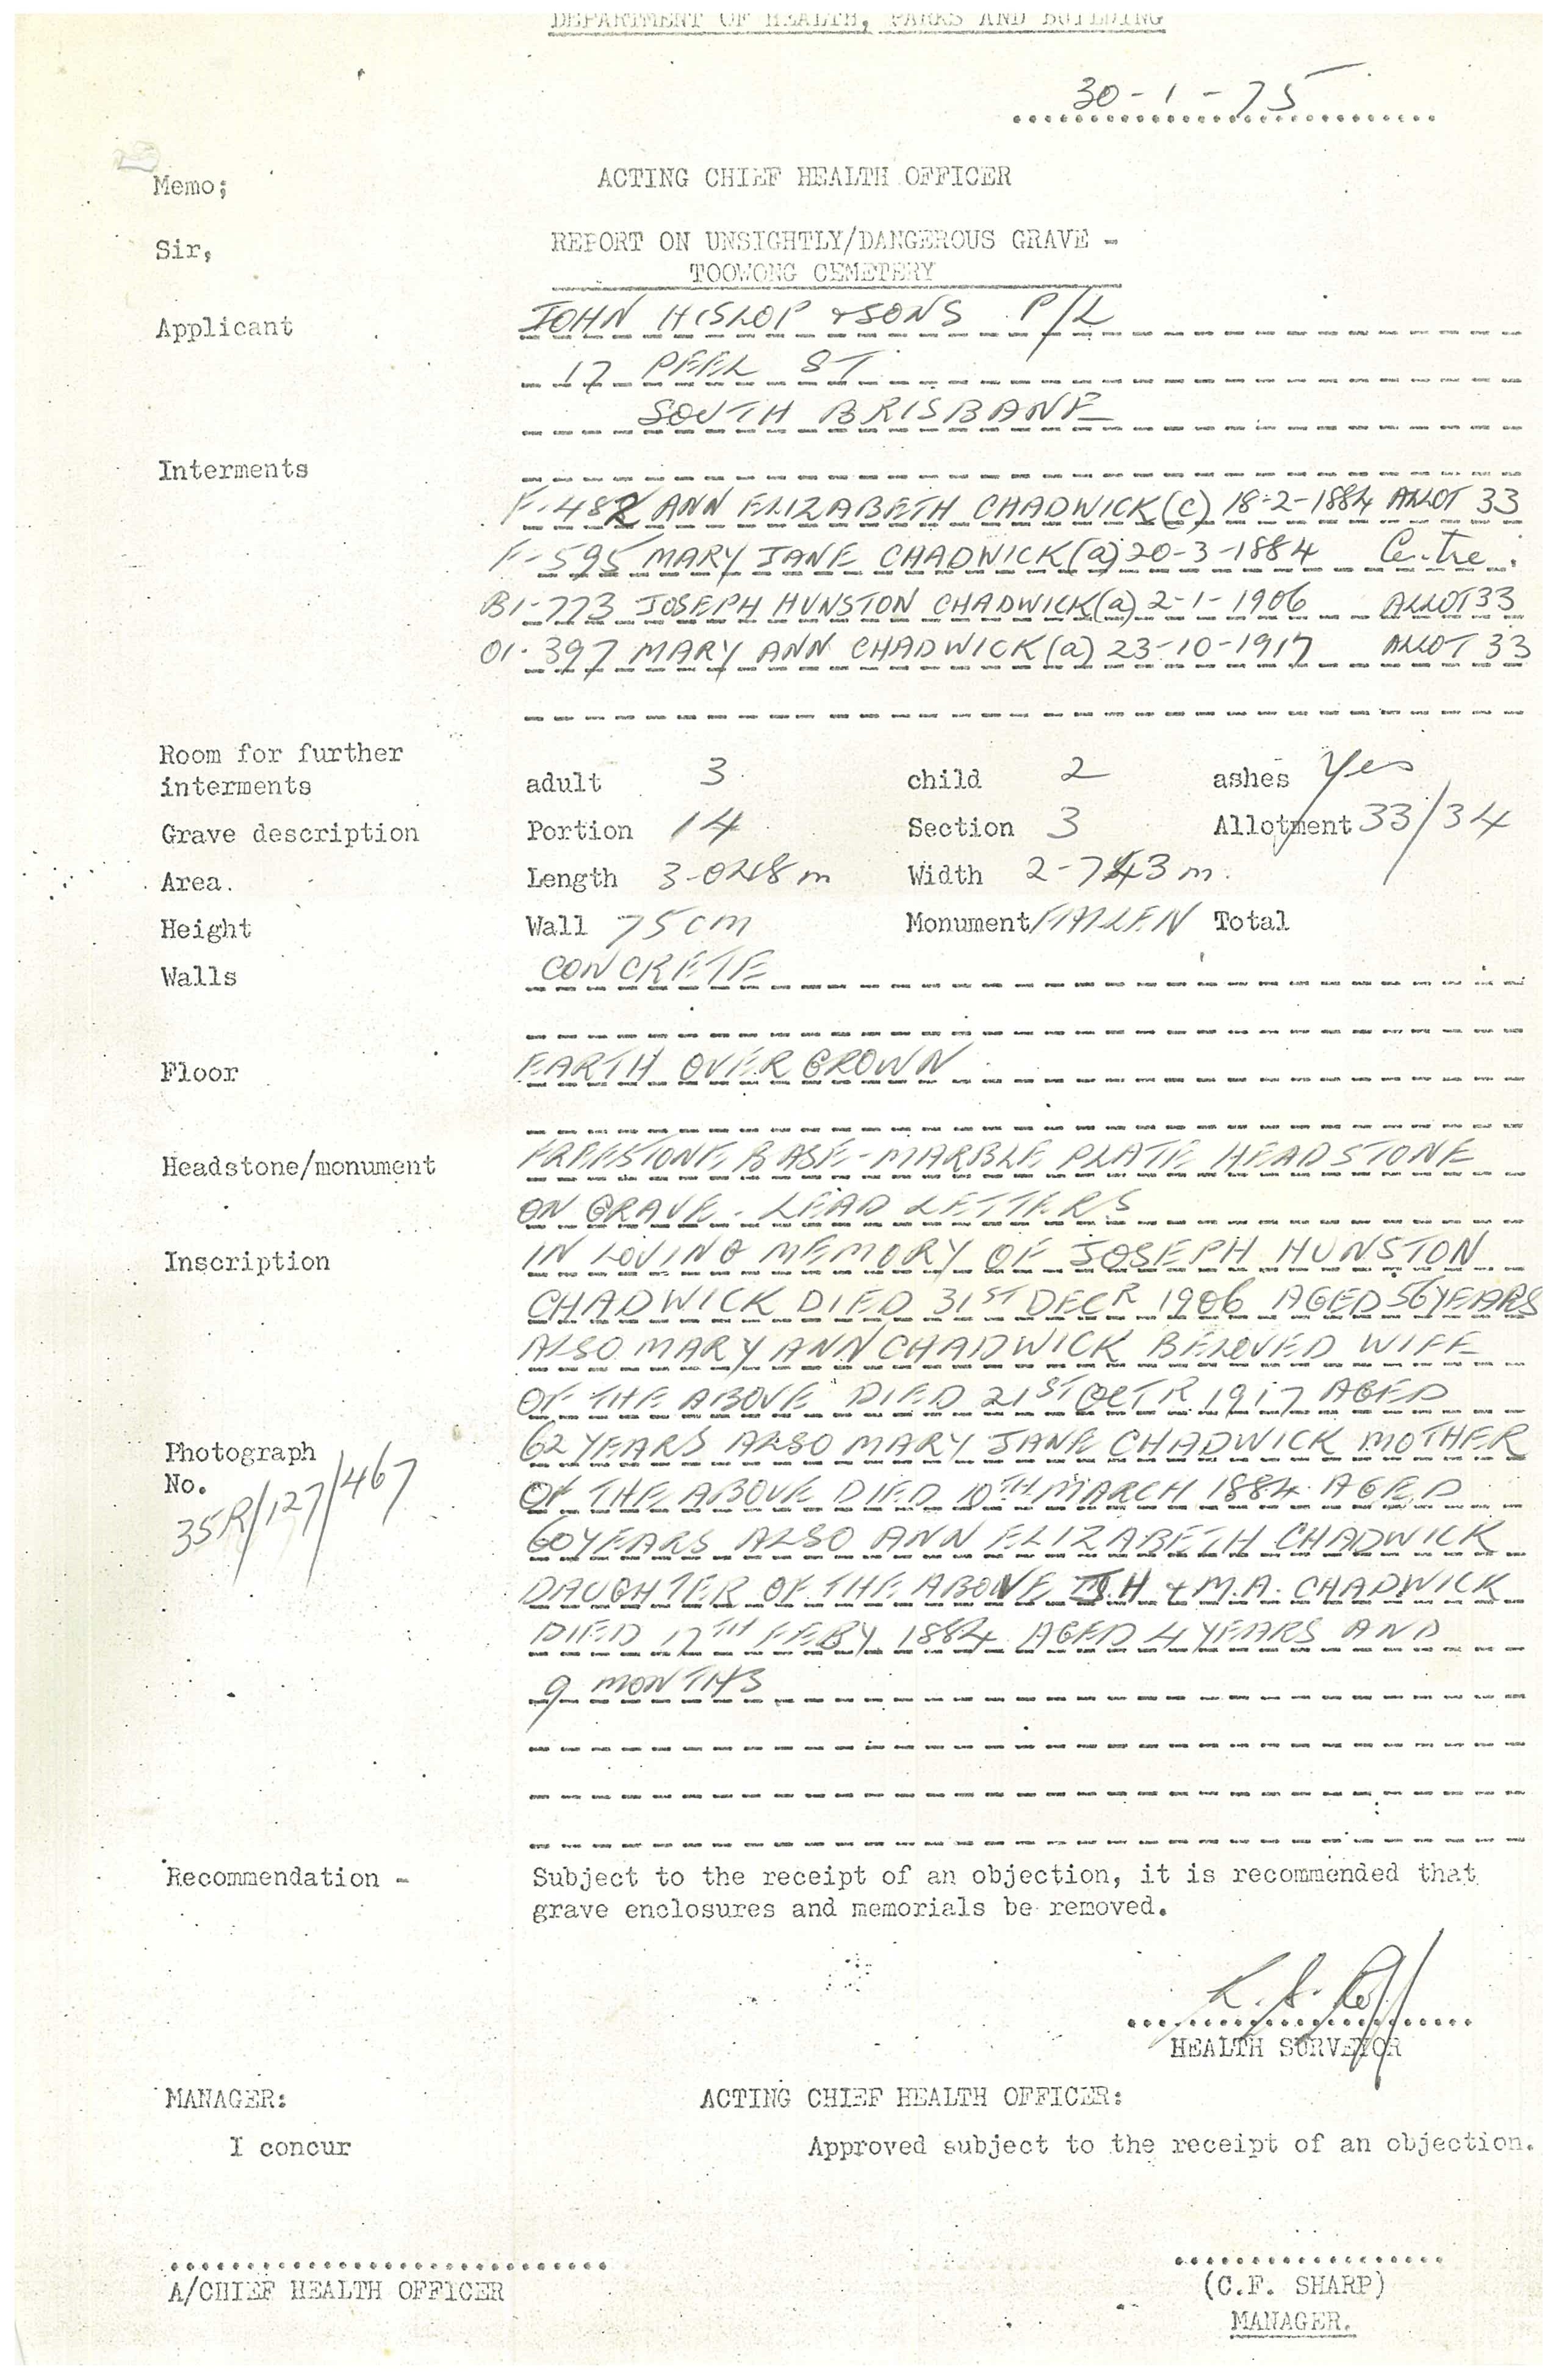 DEPARTMENT OF HEALTH, PARKS AND BUILDING
30-1-75
Memo; ACTING CHIEF HEALTH OFFICER
Sir, REPORT ON UNSIGHTLY/DANGEROUS GRAVE -
TOOWONG CEMETERY
Applicant JOHN HISLOP & SONS P/L
17 PEEL ST
SOUTH BRISBANE
Interments
F.482 ANN ELIZABETH CHADWICK (C) 18-2-1884 ALLOT 33
F-595 MARY JANE CHADWICK (a) 20-3-1884 Centre
B1-773 JOSEPH HUNSTON CHADWICK (a) 2-1-1906 ALLOT 33
01-397 MARY ANN CHADWICK (a) 23-10-1917 ALLOT 33
Room for further
interments adult 3 child 2 ashes Yes
Grave description Portion 14 Section 3 Allotment 33/34
Area. Length 3-048m Width 2-743m.
Height Wall 75cm Monument FALLEN Total
Walls CONCRETE
Floor EARTH OVER GROWN
Headstone/monument FREESTONE BASE - MARBLE PLATE HEADSTONE
ON GRAVE - LEAD LETTERS
Inscription IN LOVING MEMORY OF JOSEPH HUNSTON
CHADWICK DIED 31ST DECR 1906 AGED 56 YEARS
ALSO MARY ANN CHADWICK BELOVED WIFE
OF THE ABOVE DIED 21ST OCTR 1917 AGED
Photograph 62 YEARS ALSO MARY JANE CHADWICK MOTHER
No. OF THE ABOVE DIED 10TH MARCH 1884 AGED
35R/127/467 60 YEARS ALSO ANN ELIZABETH CHADWICK
DAUGHTER OF THE ABOVE J.H & M.A. CHADWICK
DIED 17TH FEBY 1884 AGED 4 YEARS AND
9 MONTHS
Recommendation - Subject to the receipt of an objection, it is recommended that
grave enclosures and memorials be removed.
HEALTH SURVEYOR
MANAGER: ACTING CHIEF HEALTH OFFICER:
I concur Approved subject to the receipt of an objection.
A/CHIEF HEALTH OFFICER (C.F. SHARP)
MANAGER.